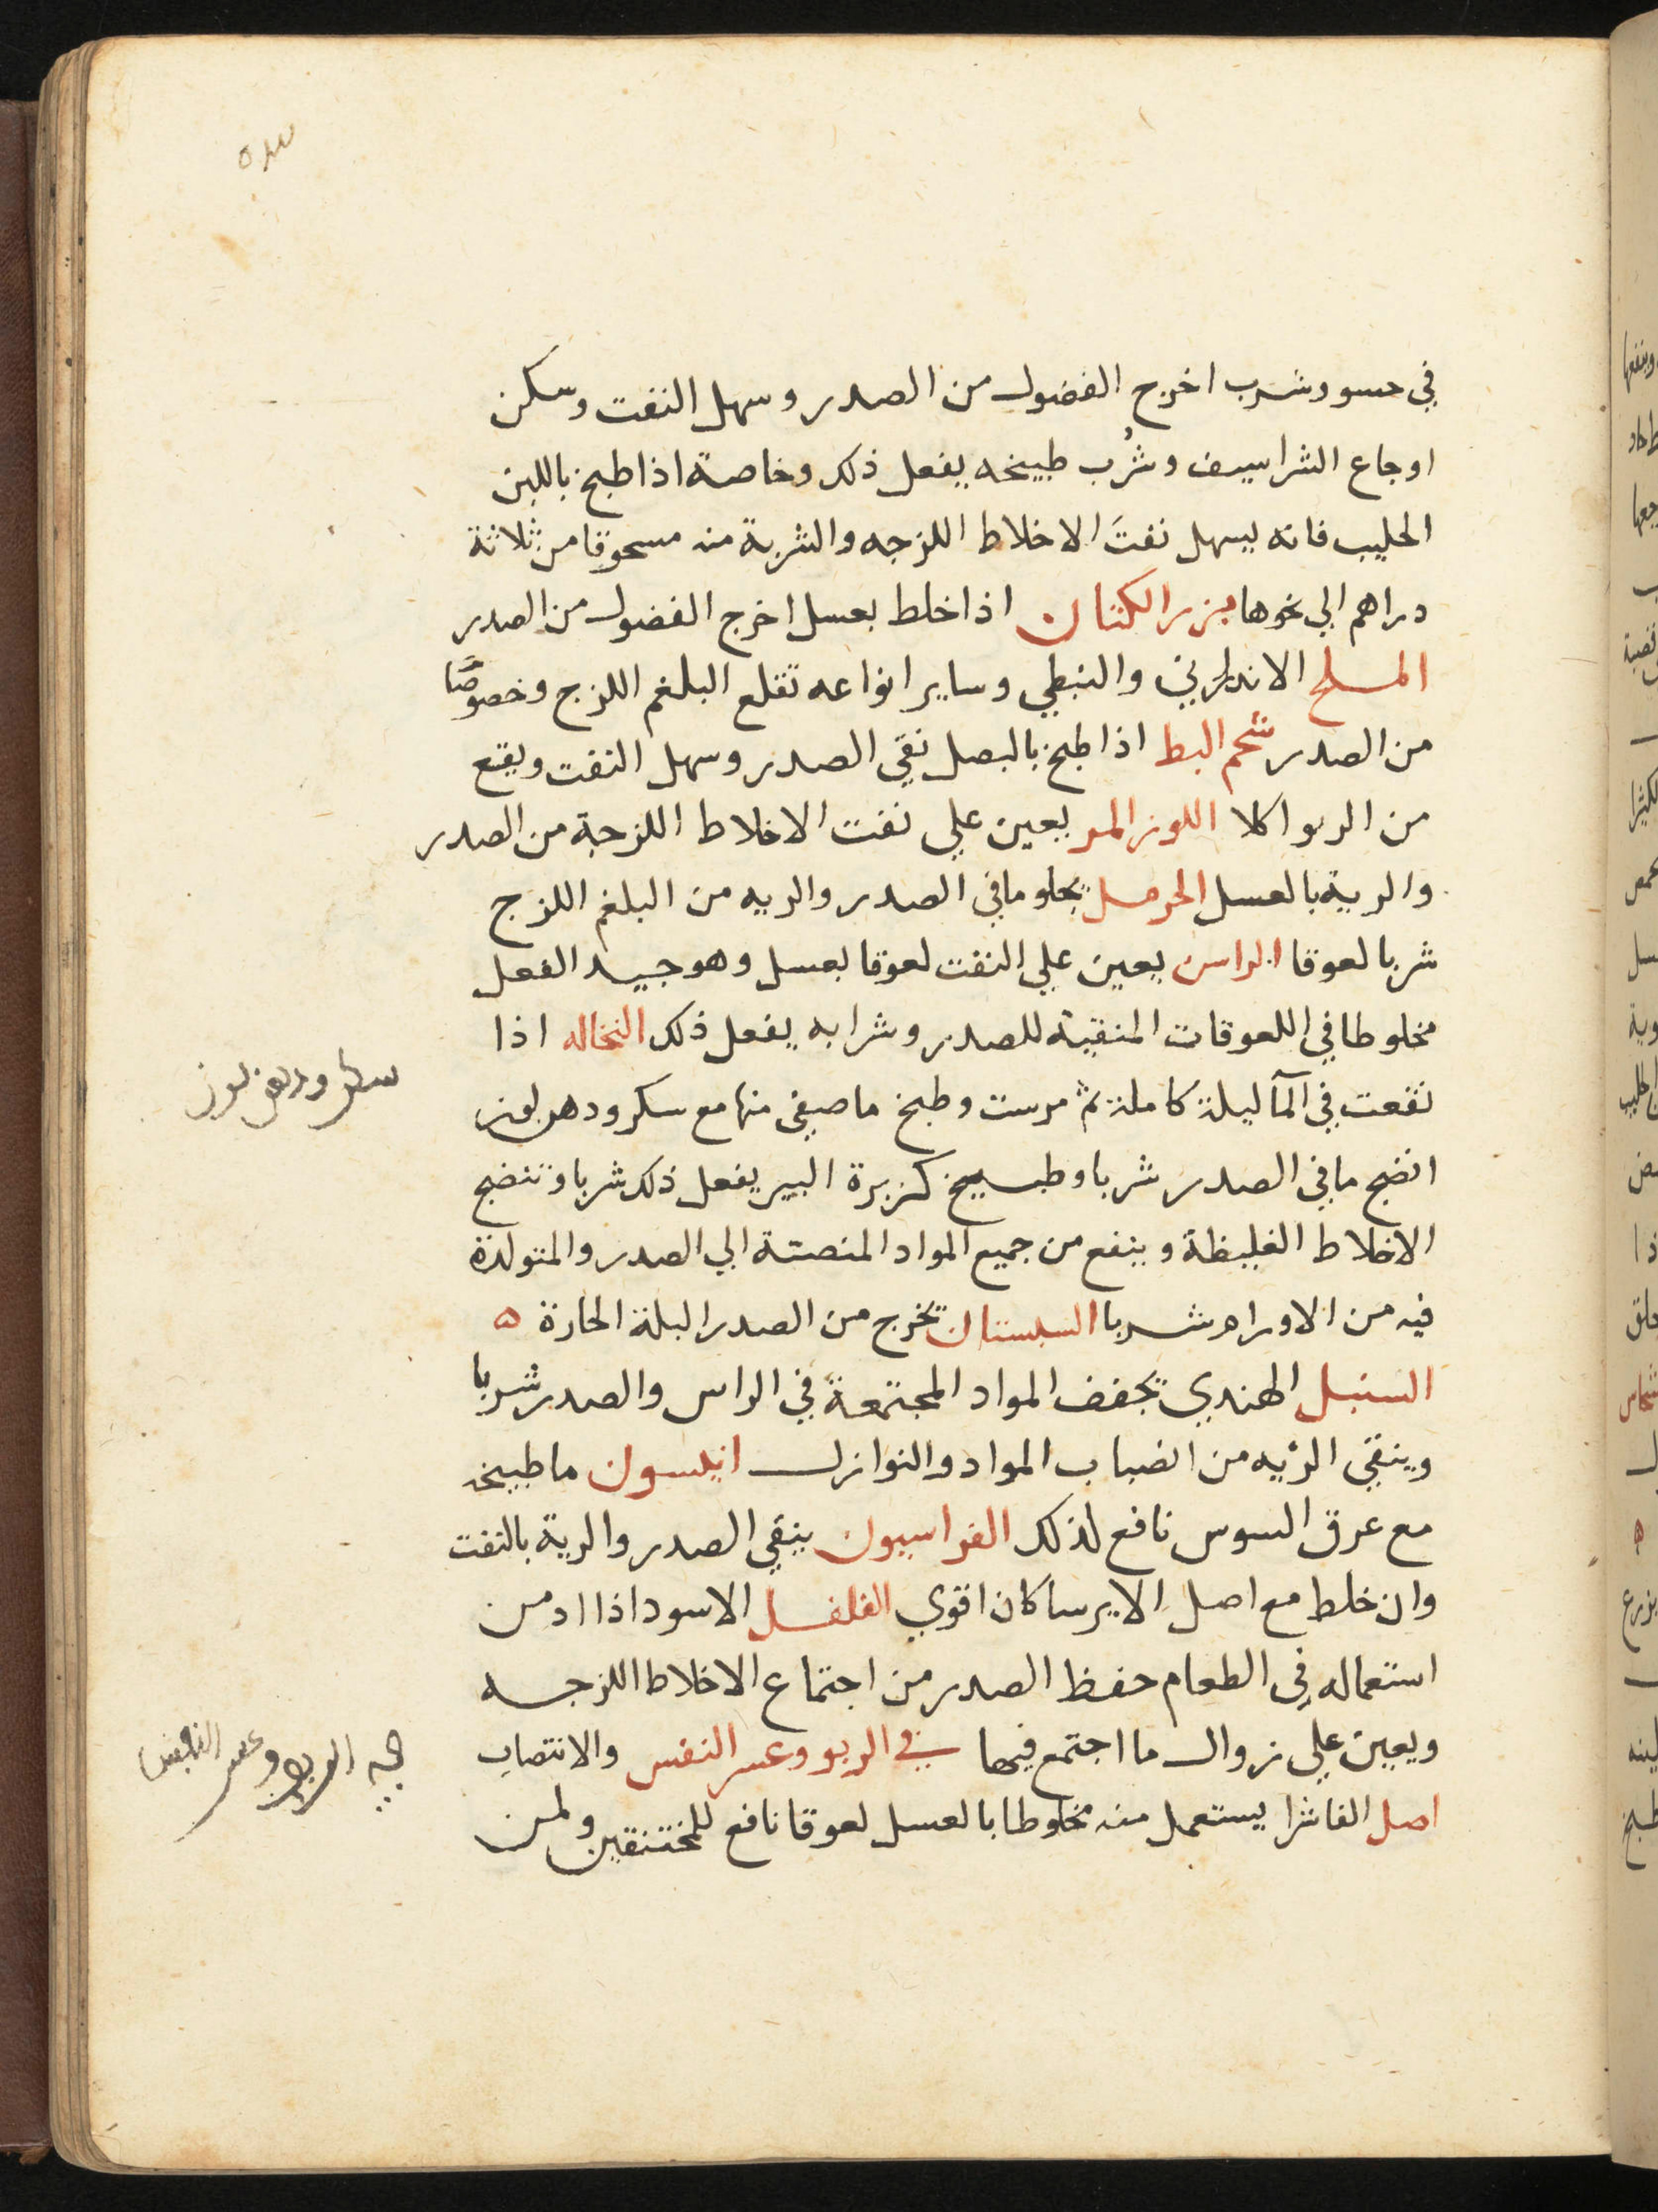 في حسو وشرب اخرج الفضول من الصدر وسهل النفت وسكن
اوجاع الشراسيف وشُرب طبيخه يفعل ذلك وخاصة اذا طبخ باللبن
الحليب فانه يسهل نفتَ الاخلاط اللزجه والشربة منه مسحوقا من ثلاثة
دراهم الي نحوها بزر الكتان اذا خلط بعسل اخرج الفضول من الصدر
الملح الاندراني والنبطي وساير انواعه تقلع البلغم اللزج وخصوصًا
من الصدر شحم البط اذا طبخ بالبصل نقي الصدر وسهل النفت ويقع
من الربو اكلا اللوز المر يعين علي نفت الاخلاط اللزجة من الصدر
والرية بالعسل الحرمل يجلو ما في الصدر والريه من البلغم اللزج
شربا لعوقا الراسن يعين علي النفت لعوقا بعسل وهو جيد الفعل
مخلوطا في اللعوقات المنقية للصدر وشرابه يفعل ذلك النخاله اذا
نقعت في المآ ليلة كاملة ثم مرست وطبخ ما صفي منها مع سكر ودهن لوز
انضج ما في الصدر شربا وطبيخ كزبرة البير يفعل ذلك شربا وتنضج
الاخلاط الغليظة وينفع من جميع المواد المنصتة الي الصدر والمتولدة
فيه من الاورام شربا السبستان تخرج من الصدر البلة الحارة ه
السنبل الهندي يجفف المواد المجتمعة في الراس والصدر شربا
وينقي الرئيه من انصباب المواد والنوازل انيسون ما طبيخه
مع عرق السوس نافع لذلك الفراسيون ينقي الصدر والرية بالنفت
وان خلط مع اصل الايرسا كان اقوي الفلفل الاسود اذا ادمن
استعماله في الطعام حفظ الصدر من اجتماع الاخلاط اللزجه
ويعين علي زوال ما اجتمع فيها في الربو وعسر النفس والانتصاب
اصل الفاشرا يستعمل منه مخلوطا بالعسل لعوقا نافع للمختنقين ولمن
سكر ودهن لوز
الربو وعسر النفس